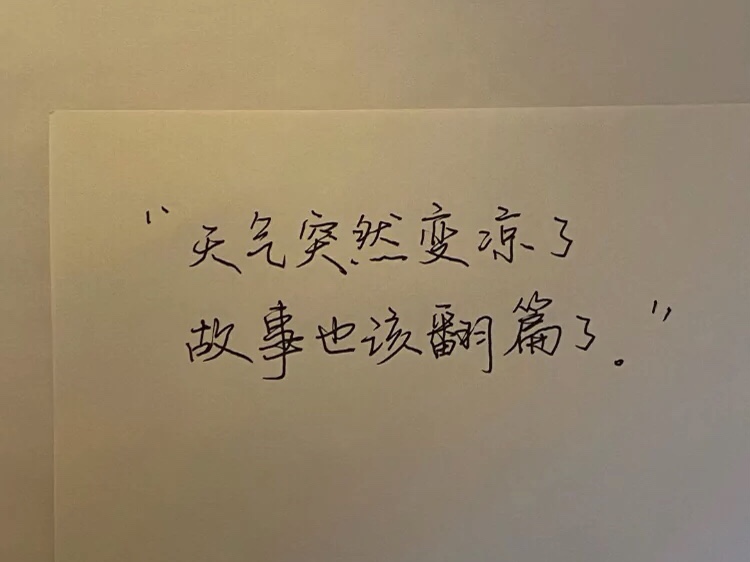 “天气突然变凉了
故事也该翻篇了。”